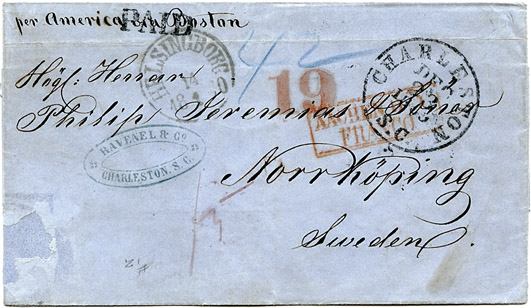 per America via Boston
PAID
HELSINGBORG
42
19
CHARLESTON
DEC
S.C.
Högl. Herrar
Philip Jeremias & Söner
AACHEN
FRANCO
RAVENEL & Co
CHARLESTON. S. C.
Norrköping
Sweden.